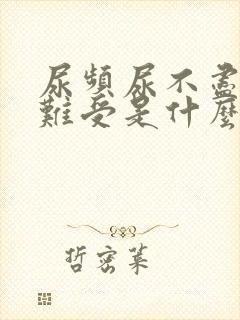 尿頻尿不盡
難受是什麼
哲密萊